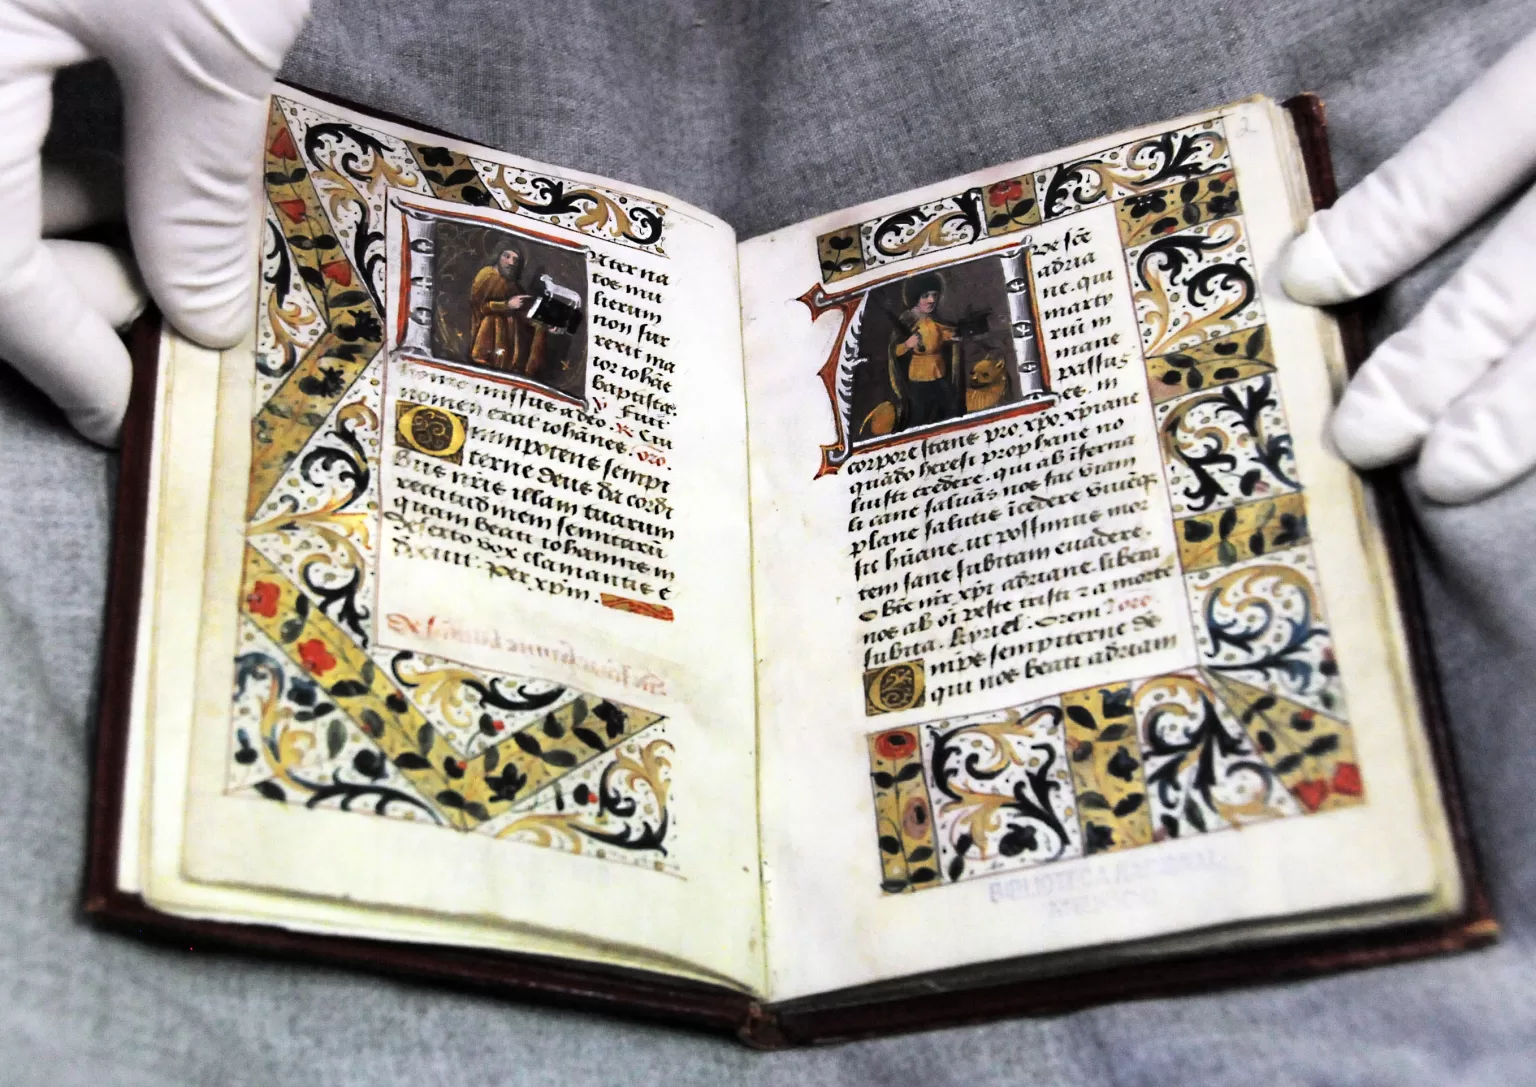 nter na
tos mu
lierum
non sur
rexit ma
ior iohãe
baptista.
℣ Fuit
homo missus a deo. ℟ Cui
nomen erat iohãnes. oro.
Omnipotens sempi
terne deus da cordi
bus nr̃is illam tuarum
rectitudinem semitarũ
quam beati iohannis in
deserto vox clamantis e
dixit. Per xp̃m.
2
ve sc̃e
adria
ne. qui
marty
riũ in
mane
passus
es. in
corpore stans pro. xp̃o. xp̃iane
quãdo heresi prophane no
luisti credere. qui ab ĩferna
li cane saluãs nos fac viam
plane salutis ĩcedere
sic hũane. ut possimus mor
tem sane subitam euadere.
O bt̃e mr̃ xp̃i adriane. libera
nos ab oĩ peste tristi ⁊ a morte
subita. kyriel. Oremꝰ oro.
Omp̃s sempiterne deꝰ
qui nos beati adriani
BIBLIOTECA NACIONAL